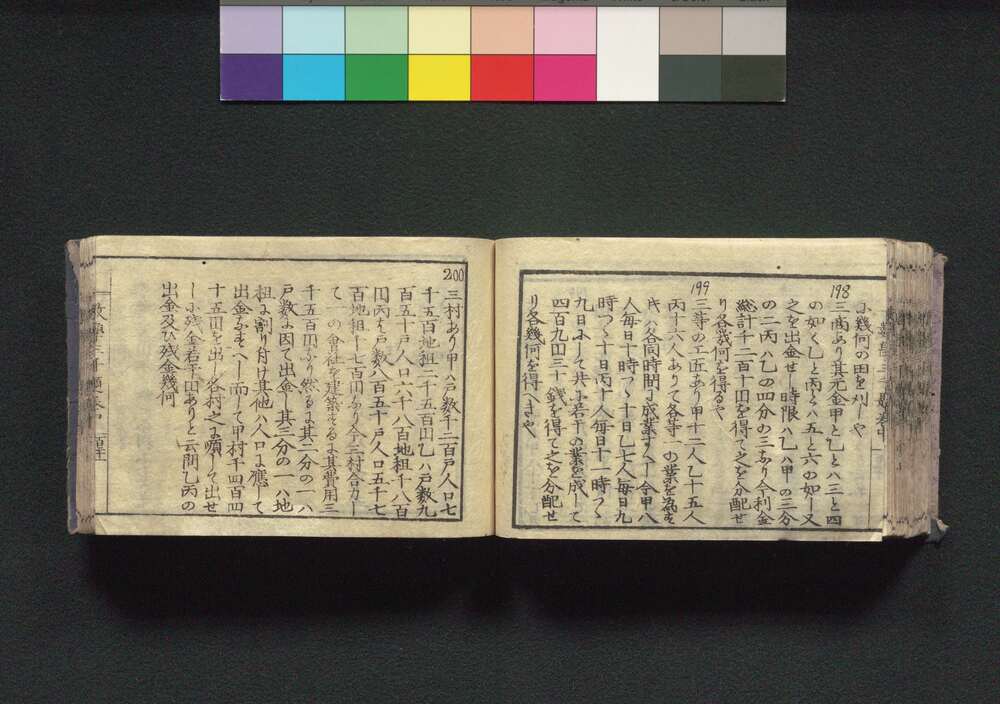 に幾何の田を刈しや
198
三商あり其元金甲と乙とハ三と四
の如く乙と丙とハ五と六の如し又
之を出金せし時限ハ乙ハ甲の三分
の二丙ハ乙の四分の三なり今利金
総計千二百十円を得て之を分配せ
り各幾何を得るや
199
三等の工匠あり甲十二人乙十五人
丙十六人ありて各等一の業を為す
各同時間に成業すへし今甲八
人毎日十時つゝ十日乙七人毎日九
時つゝ十日丙十人毎日十一時つゝ
九日にして共に若干の業を成して
四百九円三十銭を得て之を分配せ
り各幾何を得へきや
200
三村あり甲ハ戸数千二百戸人口七
千五百地租二千五百円乙ハ戸数九
百五十戸人口六千八百地租千八百
円丙ハ戸数八百五十戸人口五千七
百地租千七百円なり今三村合力し
て一の會社を建築するに其費用三
千五百円なり然るに其二分の一ハ
戸数に因て出金し其三分の一ハ地
租に割り付け其他ハ人口に應して
出金すへし而して甲村千四百四
十五円を出し各村之に順して出せ
しに残金若干円ありと云問乙丙の
出金及ひ残金幾何